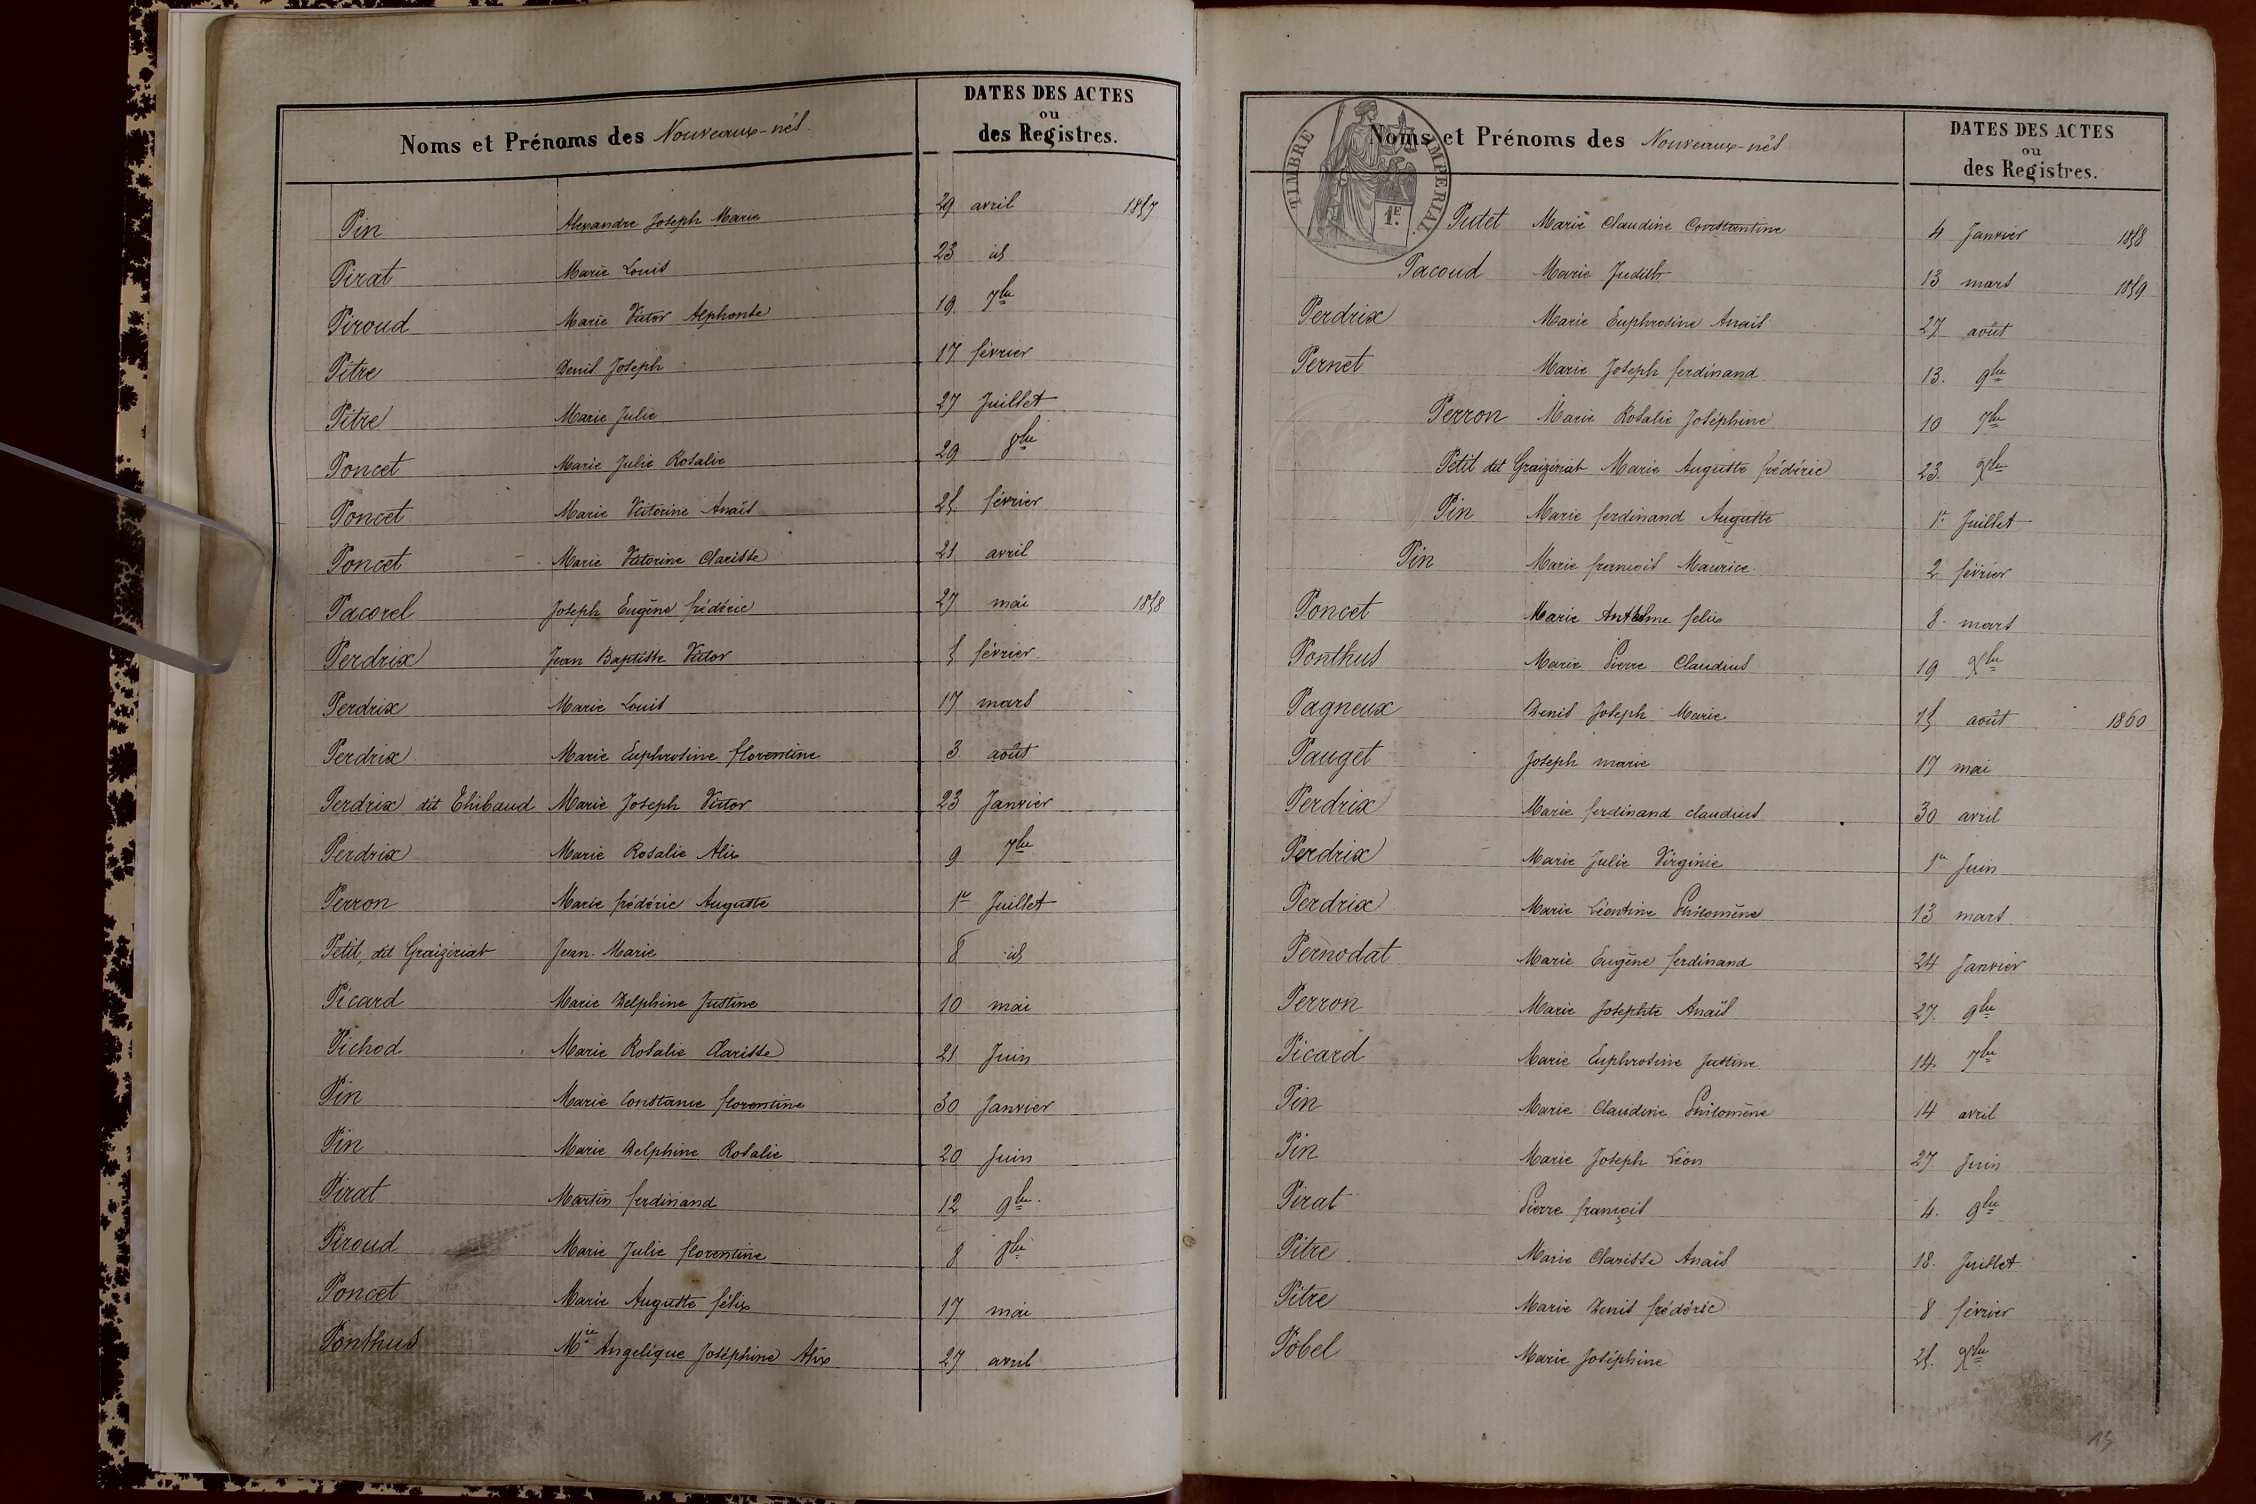 Noms et Prénoms des Nouveaux-nés
DATES DES ACTES
ou
des Registres.
Pin Alexandre Joseph Marie 29 avril 1857
Pirat Marie Louis 23 id
Piroud Marie Victor Alphonse 19 7bre
Pitre Denis Joseph 17 février
Pitre Marie Julie 27 Juillet
Poncet Marie Julie Rosalie 29 8bre
Poncet Marie Victorine Anaïs 25 février
Poncet Marie Victorine Clarisse 21 avril
Pacorel Joseph Eugène frédéric 27 mai 1858
Perdrix Jean Baptiste Victor 5 février
Perdrix Marie Louis 17 mars
Perdrix Marie Euphrosine florentine 3 août
Perdrix dit Thibaud Marie Joseph Victor 23 Janvier
Perdrix Marie Rosalie Alix 9 7bre
Perron Marie frédéric Auguste 1er Juillet
Petit, dit Graizeriat Jean-Marie 8 id
Picard Marie Delphine Justine 10 mai
Pichod Marie Rosalie Clarisse 21 Juin
Pin Marie Constance florentine 30 Janvier
Pin Marie Delphine Rosalie 20 Juin
Pirat Martin ferdinand 12 9bre
Piroud Marie Julie florentine 8 8bre
Poncet Marie Auguste félix 17 mai
Ponthus Mie Angelique Joséphine Alix 27 avril
Noms et Prénoms des Nouveaux-nés
DATES DES ACTES
ou
des Registres.
TIMBRE IMPERIAL
1.E
Putet Marie Claudine Constantine 4 Janvier 1858
Pacoud Marie Judith 13 mars 1859
Perdrix Marie Euphrosine Anaïs 27 août
Pernet Marie Joseph ferdinand 13. 9bre
Perron Marie Rosalie Joséphine 10 7bre
Petit dit Graizeriat Marie Auguste frédéric 23. Xbre
Pin Marie ferdinand Auguste 1er Juillet
Pin Marie françois Maurice 2 février
Poncet Marie Anthelme felix 8 mars
Ponthus Marie Pierre Claudius 19 Xbre
Pagneux Denis Joseph Marie 15 août 1860
Pauget Joseph marie 17 mai
Perdrix Marie ferdinand claudius 30 avril
Perdrix Marie Julie Virginie 1er Juin
Perdrix Marie Léontine Philomène 13 mars
Pernodat Marie Eugène ferdinand 24 Janvier
Perron Marie Josephte Anaïs 27. 9bre
Picard Marie Euphrosine Justine 14 7bre
Pin Marie Claudine Philomène 14 avril
Pin Marie Joseph Léon 27 Juin
Pirat Pierre françois 4. 9bre
Pitre Marie Clarisse Anaïs 18. Juillet
Pitre Marie Denis frédéric 8 février
Pobel Marie Joséphine 25. Xbre